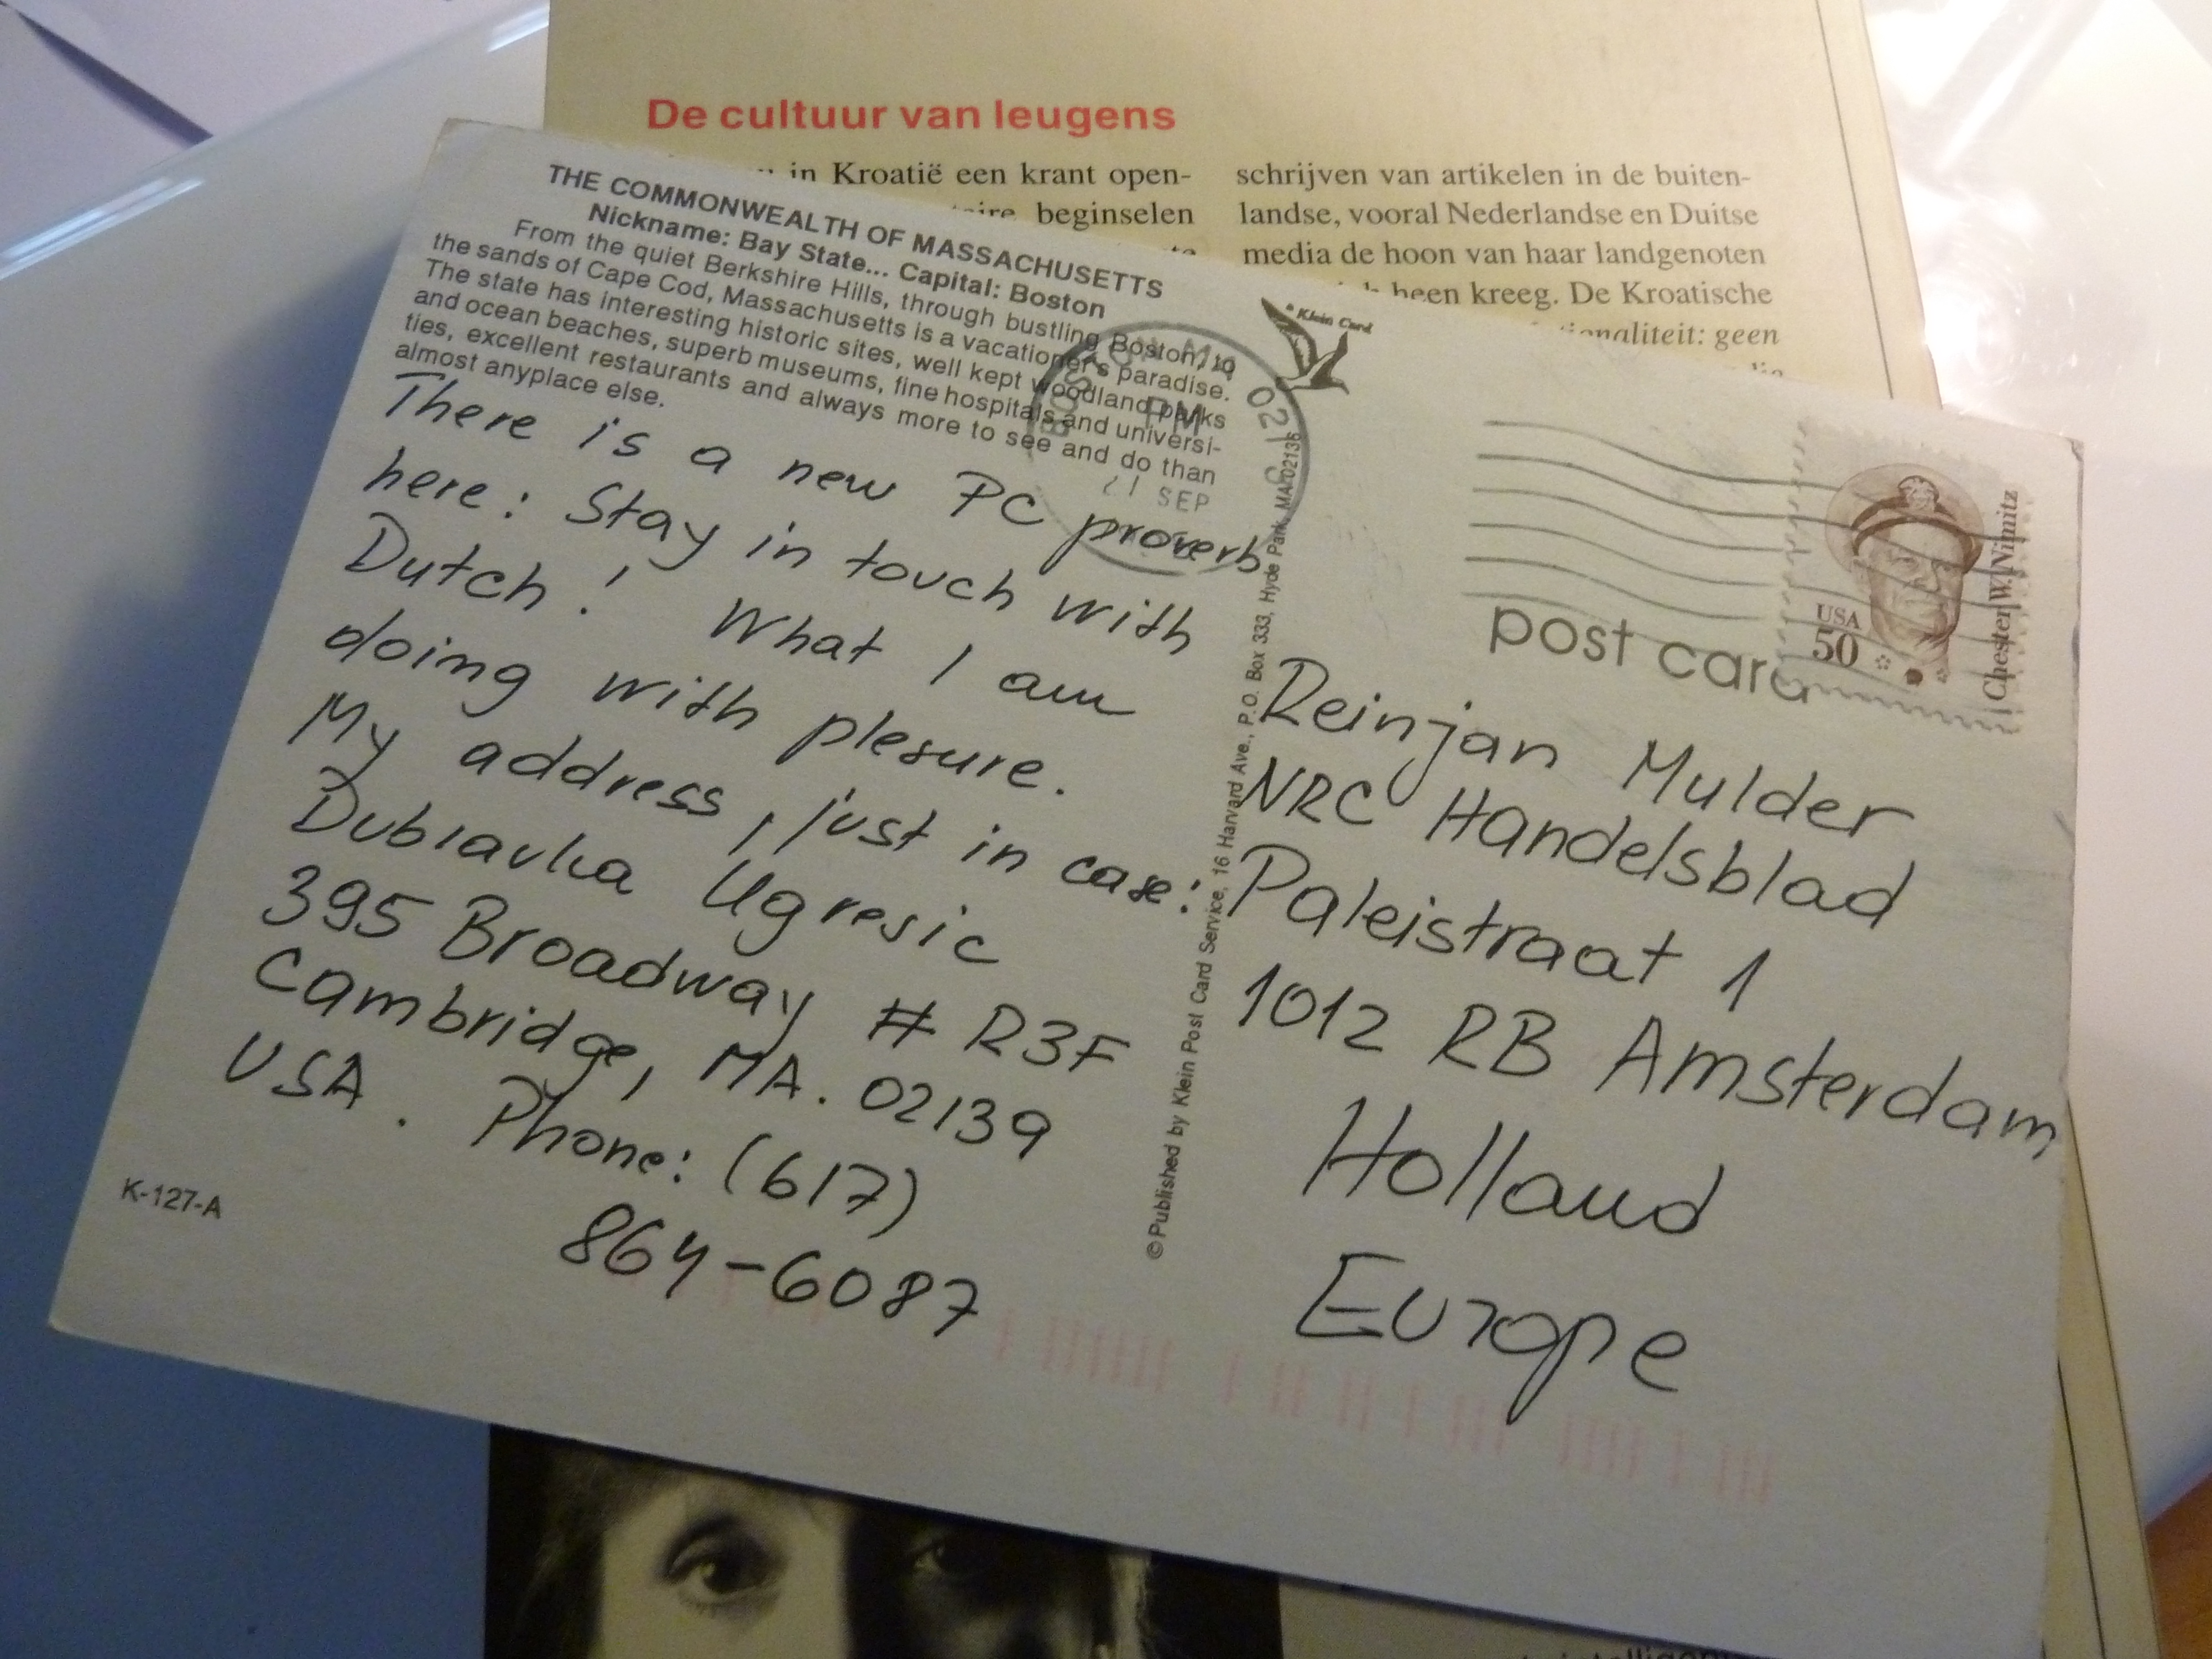 De cultuur van leugens
in Kroatië een krant open-
beginselen
schrijven van artikelen in de buiten-
landse, vooral Nederlandse en Duitse
media de hoon van haar landgenoten
heen kreeg. De Kroatische
geen
THE COMMONWEALTH OF MASSACHUSETTS
Nickname: Bay State... Capital: Boston
From the quiet Berkshire Hills, through bustling Boston, to
the sands of Cape Cod, Massachusetts is a vacationer's paradise.
The state has interesting historic sites, well kept woodland parks
and ocean beaches, superb museums, fine hospitals and universi-
ties, excellent restaurants and always more to see and do than
almost anyplace else.
There is a new PC proverb
here: Stay in touch with
Dutch! What I am
doing with plesure.
My address, just in case:
Dubravka Ugresic
395 Broadway # R3F
Cambridge, MA. 02139
USA. Phone: (617)
864-6087
K-127-A
Klein Card
BOSTON MA 021
PM
21 SEP
© Published by Klein Post Card Service, 16 Harvard Ave., P.O. Box 333, Hyde Park, MA 02136
post card
USA
50
Chester W. Nimitz
Reinjan Mulder
NRC Handelsblad
Paleistraat 1
1012 RB Amsterdam
Holland
Europe